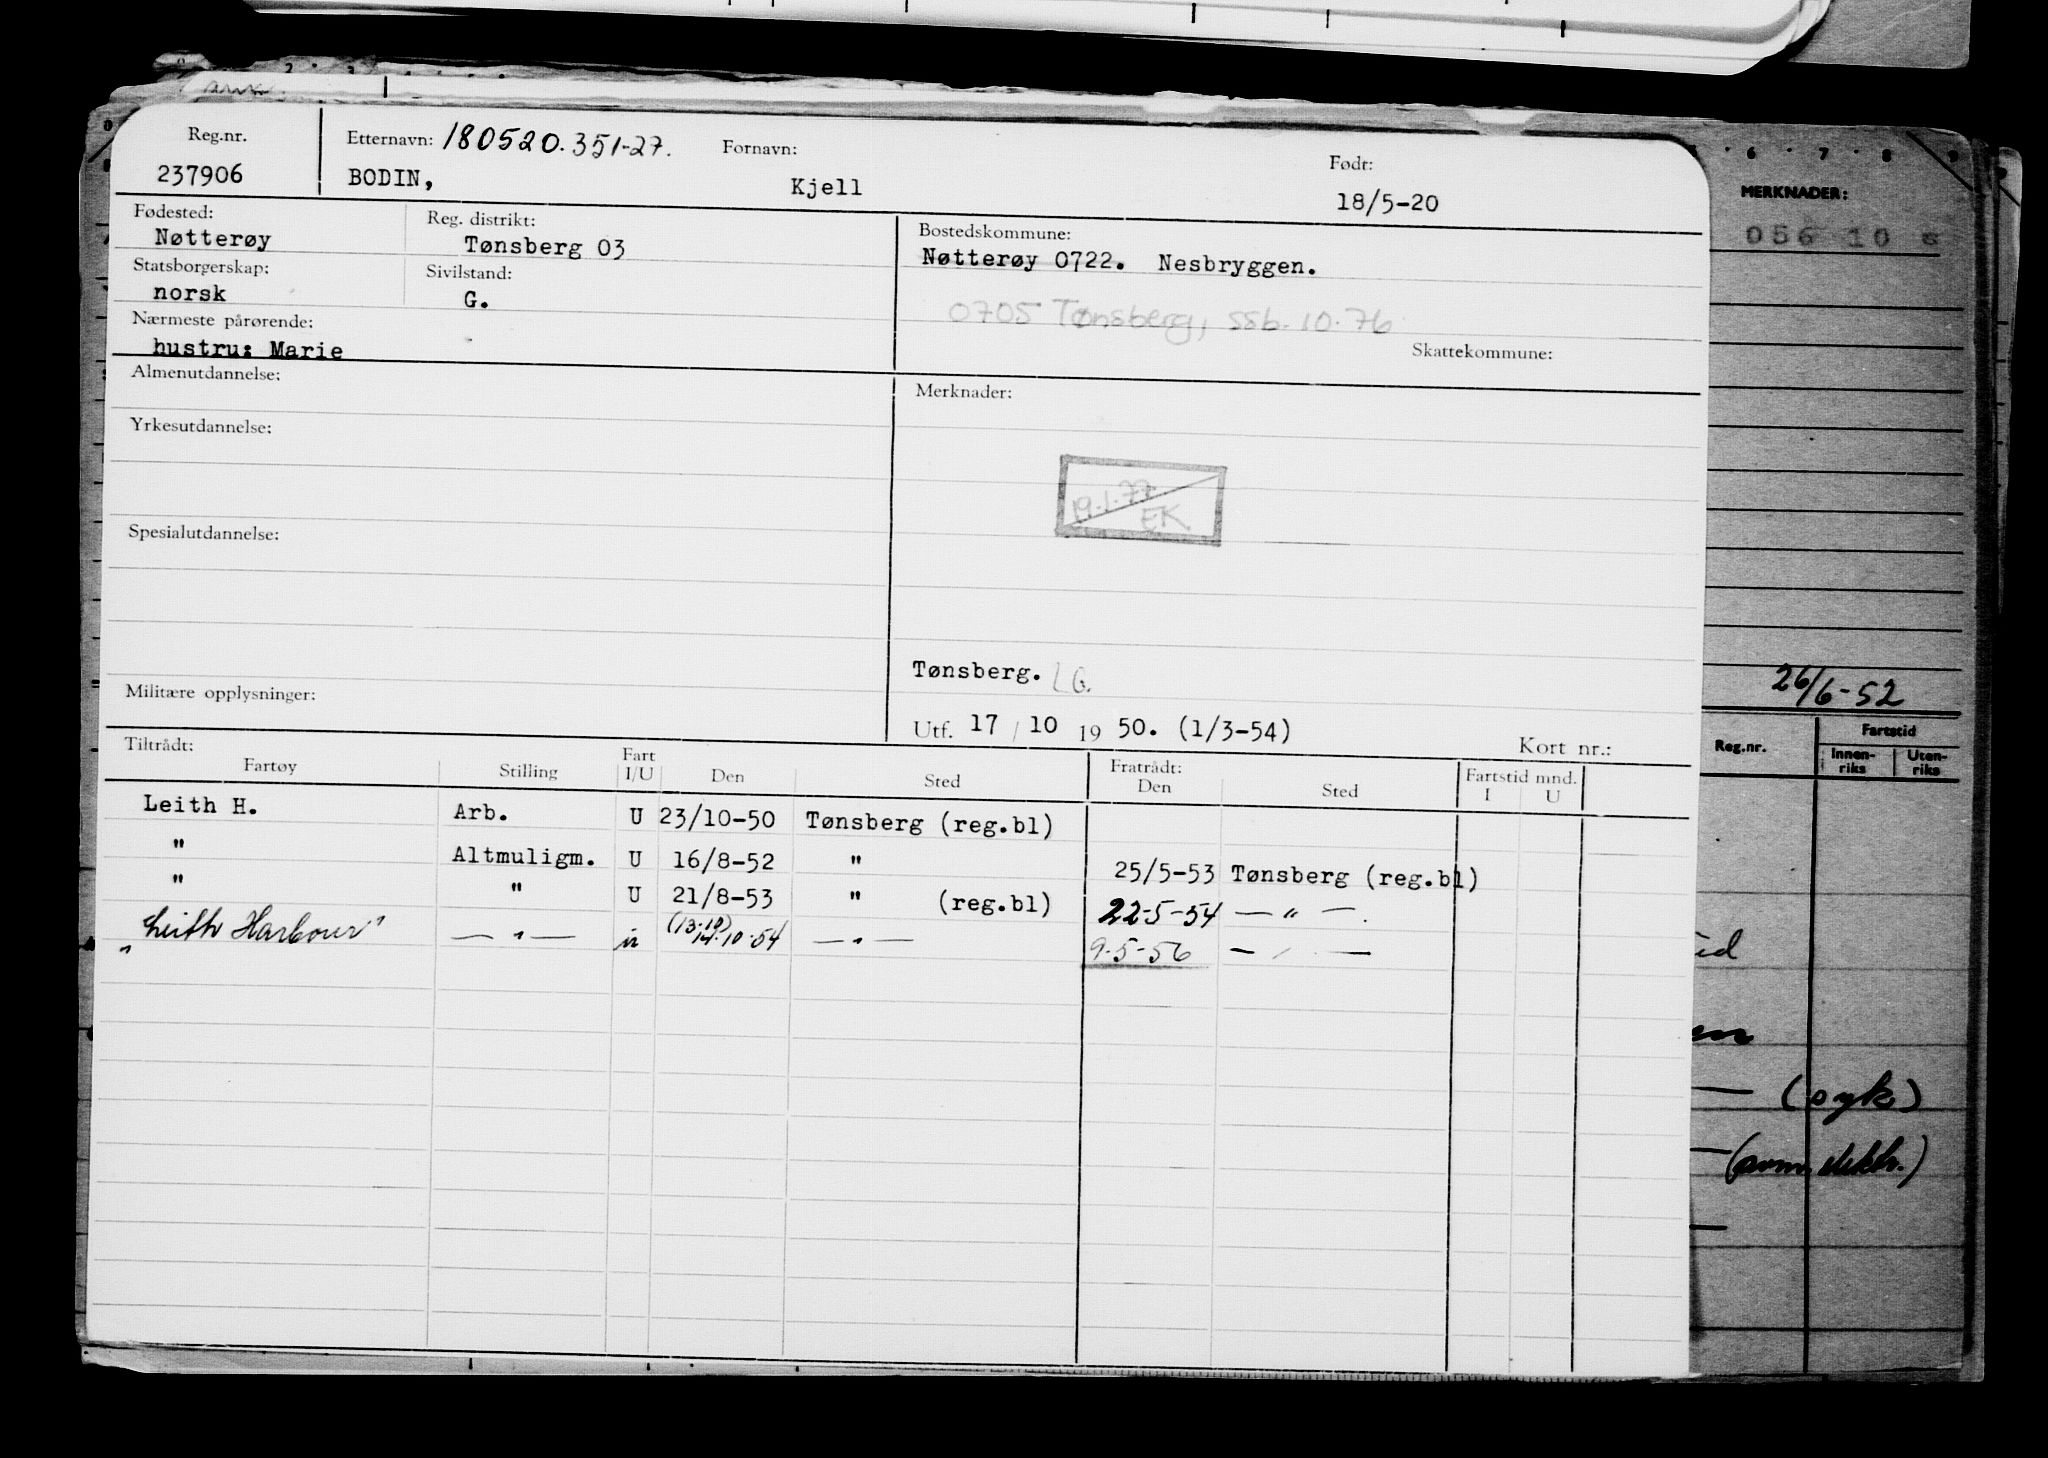 Reg.nr. Etternavn: 180520.351-27. Fornavn: Født:
237906 BODIN, Kjell 18/5-20
Fødested: Reg. distrikt: Bostedskommune:
Nøtterøy Tønsberg 03 Nøtterøy 0722. Nesbryggen.
Statsborgerskap: Sivilstand:
norsk G. 0705 Tønsberg, ssb. 10.76
Nærmeste pårørende: Skattekommune:
hustru: Marie
Almenutdannelse: Merknader:
Yrkesutdannelse:
19.1.77
EK
Spesialutdannelse:
Tønsberg. LG.
Militære opplysninger:
Utf. 17 / 10 19 50. (1/3-54) Kort nr.:
Tiltrådt: Fratrådt: Fartstid mnd.
Fartøy Stilling Fart I/U Den Sted Den Sted I U
Leith H. Arb. U 23/10-50 Tønsberg (reg.bl)
" Altmuligm. U 16/8-52 " 25/5-53 Tønsberg (reg.bl)
" " U 21/8-53 " (reg.bl) 22-5-54 — " —.
"Leith Harbour" — " — u (13.10) 14.10.54 — " — 9.5-56 — " —
6 7 8 9
MERKNADER:
056 10
26/6-52
Reg.nr. Fartstid
Innen-riks Uten-riks
(syk)